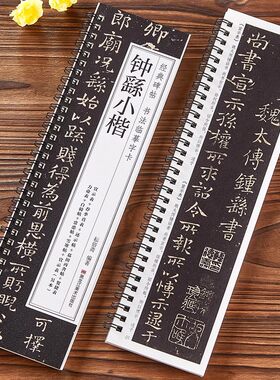 魏太傅鍾繇書
尚書宣示孫權所求詔令所報所以博示逮于
卿
可擇
郎廟況繇始以疏賤得為前恩橫所
经典碑帖 书法临摹字卡
钟繇小楷
编著